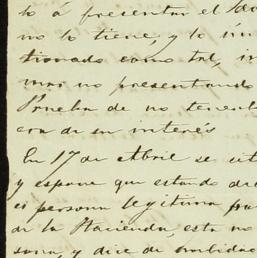 lo á presentar el do
no lo tiene, y lo ún
tionado como tal, in
mas no presentando
Prueba de no tenerl
era de su interés
En 17 de Abril se
y espone que estando de
es persona legitima
de la Hacienda, esta no
sona, y dice de nulidad